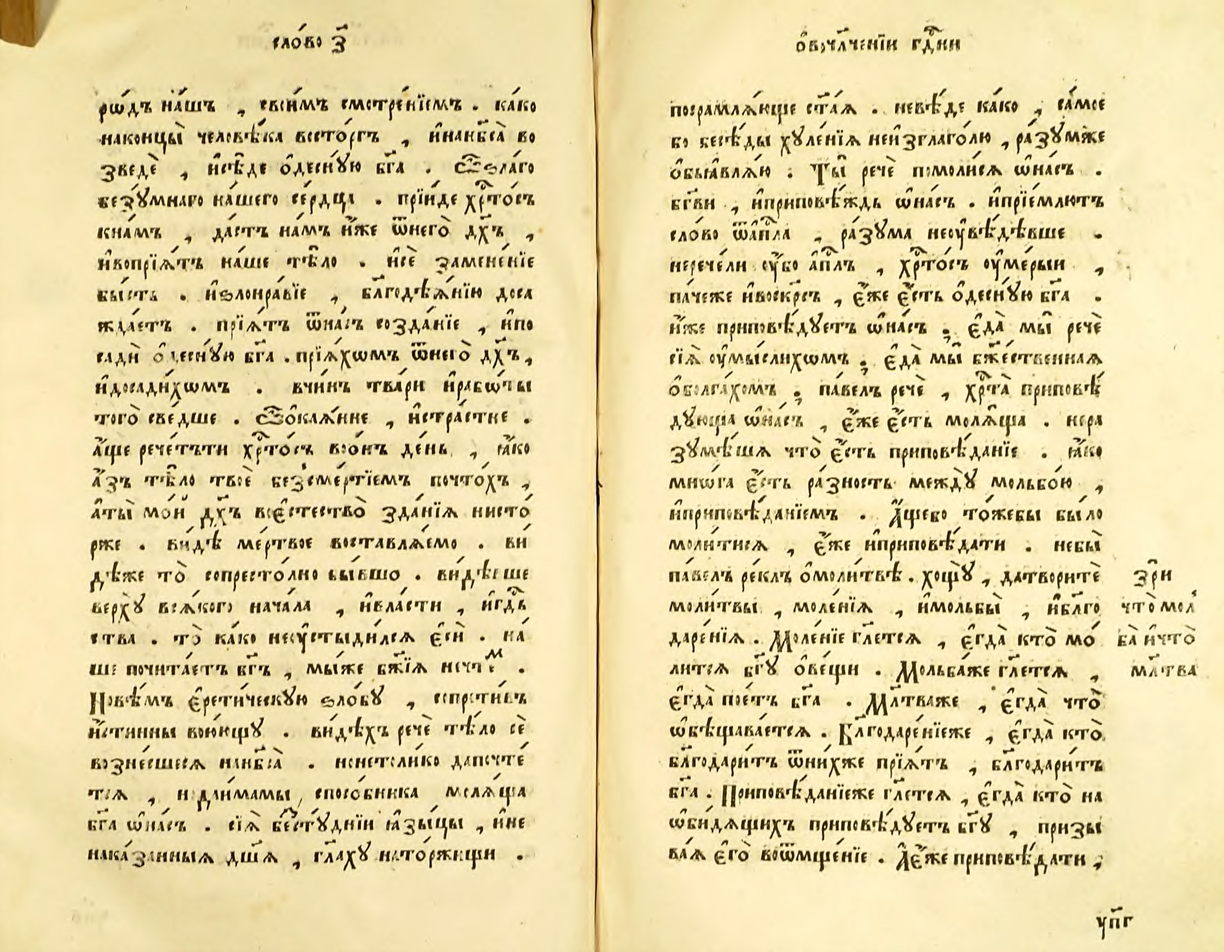 сло́во з҃
рѡ́дъ на́шъ , свои́мъ смотре́нїемъ . ка́ко
наконцы̀ человѣ́ка всето́ргъ , и҆нанб҃са̀ во
зведѐ , и҆сѣ́де ѻ҆десну́ю бг҃а . Ѿѕла́го
безꙋ́мнаго на́шего се́рдца . прїи́де хрⷭ҇то́съ
кна́мъ , да́стъ на́мъ и҆́же ѿнегѡ̀ дх҃ъ ,
и҆вопрїѧ́тъ на́ше тѣ́ло . и҆сѐ замене́нїе
бы́сть . и҆ѕлонра́вїе , блг҃одѣѧ́нїю доса
жда́етъ . прїѧ́тъ ѿна́съ созда́нїе , и҆по
садѝ ѻ҆деснꙋ́ю бг҃а . прїѧ́хѡмъ ѿнегѡ̀ дх҃ъ ,
и҆досади́хѡмъ . вчи́нъ тва́ри и҆рабѡ́ты
того̀ све́дше . Ѽѻкаѧ́нне , и҆стра́стне .
а҆́ще рече́тъти хрⷭ҇то́съ во́онъ де́нь , ꙗ҆́ко
а҆́зъ тѣ́ло твоѐ безсме́ртїемъ почто́хъ ,
а҆ты̀ мо́й дх҃ъ воє҆стество̀ зда́нїѧ нисто
рже . ви́дѣ ме́ртвое воставлѧ́емо . ви
дѣ́же то̀ сопресто́лно бы́вшо . ви́дѣвше
верхꙋ̀ всѧ́кого нача́ла , и҆вла́сти , и҆гдⷭ҇ь
ства . то̀ ка́ко неꙋстыди́лсѧ є҆сѝ . на́
ше почита́етъ бг҃ъ , мы́же бж҃їѧ несчⷭ҇тм .
Но́вѣмъ є҆рети́ческꙋю ѕло́бꙋ , сопроти́въ
и҆́стинны вою́ющꙋ . ви́дѣхъ речѐ тѣ́ло сѐ
возне́сшеесѧ нанб҃са̀ . нонето́лико дапочте
тсѧ , и҆да́имамы , спосо́бника мо́лѧща
бг҃а ѡ҆на́съ . сїѧ̀ бестꙋ́днїи ꙗ҆зы́цы , и҆не
нака́занныѧ дш҃ѧ , гл҃ахꙋ нато́ржищи .
ѻ҆вочл҃ченїи гдⷭ҇ни
посрамлѧ́юще ст҃аѧ . невѣ́де ка́ко , са́мое
бо бесѣ́ды хꙋле́нїѧ неи҆зглаго́лю , ра́зꙋмже
ѻ҆б̾ѧвлѧ́ю . Ты̀ речѐ помоли́сѧ ѡ҆на́съ .
бг҃ви , и҆приповѣ́ждь ѡ҆на́съ . и҆прїе́млютъ
сло́во ѿап҃ла , ра́зꙋма неꙋвѣ́дѣвше .
не́речели ᲂу҆́бо ап҃лъ , хрⷭ҇то́съ ᲂу҆ме́рыи ,
па́чеже и҆воскр҃съ , є҆́же є҆́сть ѻ҆деснꙋ́ю бг҃а .
и҆́же приповѣ́дꙋетъ ѡ҆на́съ . є҆да̀ мы̀ речѐ
сїѧ̀ ᲂу҆мы́слихѡмъ ; є҆да̀ мы̀ бж҃е́ственнаѧ
ѻ҆болга́хомъ ; па́велъ речѐ , хрⷭ҇та̀ приповѣ́
дꙋюща ѡ҆на́съ , є҆́же є҆́сть молѧ́ща . нера
зꙋмѣ́шѧ что̀ є҆́сть приповѣ́данїе . ꙗ҆́ко
мно́га є҆́сть ра́зность междꙋ̀ мольбо́ю ,
и҆приповѣ́данїемъ . А҆́щебо то́жебы бы́ло
моли́тисѧ , є҆́же и҆приповѣ́дати . небы̀
па́велъ ре́клъ ѻ҆моли́твѣ . хощꙋ̀ , датворитѐ
моли́твы , моле́нїѧ , и҆мольбы̀ , и҆блг҃о
даре́нїѧ . Моле́нїе гл҃етсѧ , є҆гда̀ кто̀ мо́
литсѧ бг҃ꙋ ѻ҆ве́щи . Мольба́же гл҃етсѧ ,
є҆гда̀ пое́тъ бг҃а . Мл҃тваже , є҆гда̀ что̀
ѡ҆бѣщава́етсѧ . Блг҃одаре́нїеже , є҆гда̀ кто̀
блг҃одари́тъ ѿни́хже прїѧ́тъ , блг҃одари́тъ
бг҃а . Приповѣ́данїеже гл҃етсѧ , є҆гда̀ кто̀ на
ѡ҆би́дѧщихъ приповѣ́дꙋетъ бг҃ꙋ , призы
ва́ѧ є҆гѡ̀ воѿмще́нїе . А҆є҆́же приповѣ́дати ,
зрѝ
что̀ мол
ба̀ и҆что̀
мл҃тва
ꙋ҆п҃г